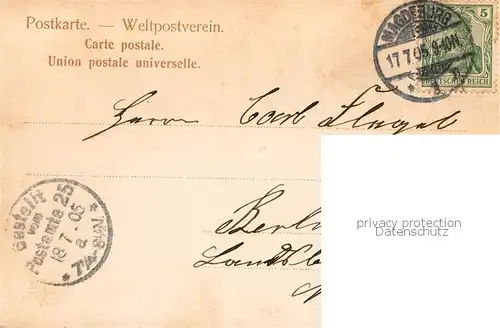 Postkarte. — Weltpostverein.
Carte postale.
Union postale universelle.
MAGDEBURG
17 7.05. 9-10N.
5
DEUTSCHES REICH
Herrn Carl Flügel
privacy protection
Datenschutz
Bestellt
vom
Postamte 25
18/7.05
7¼-8¼V.
Berlin
Landsb